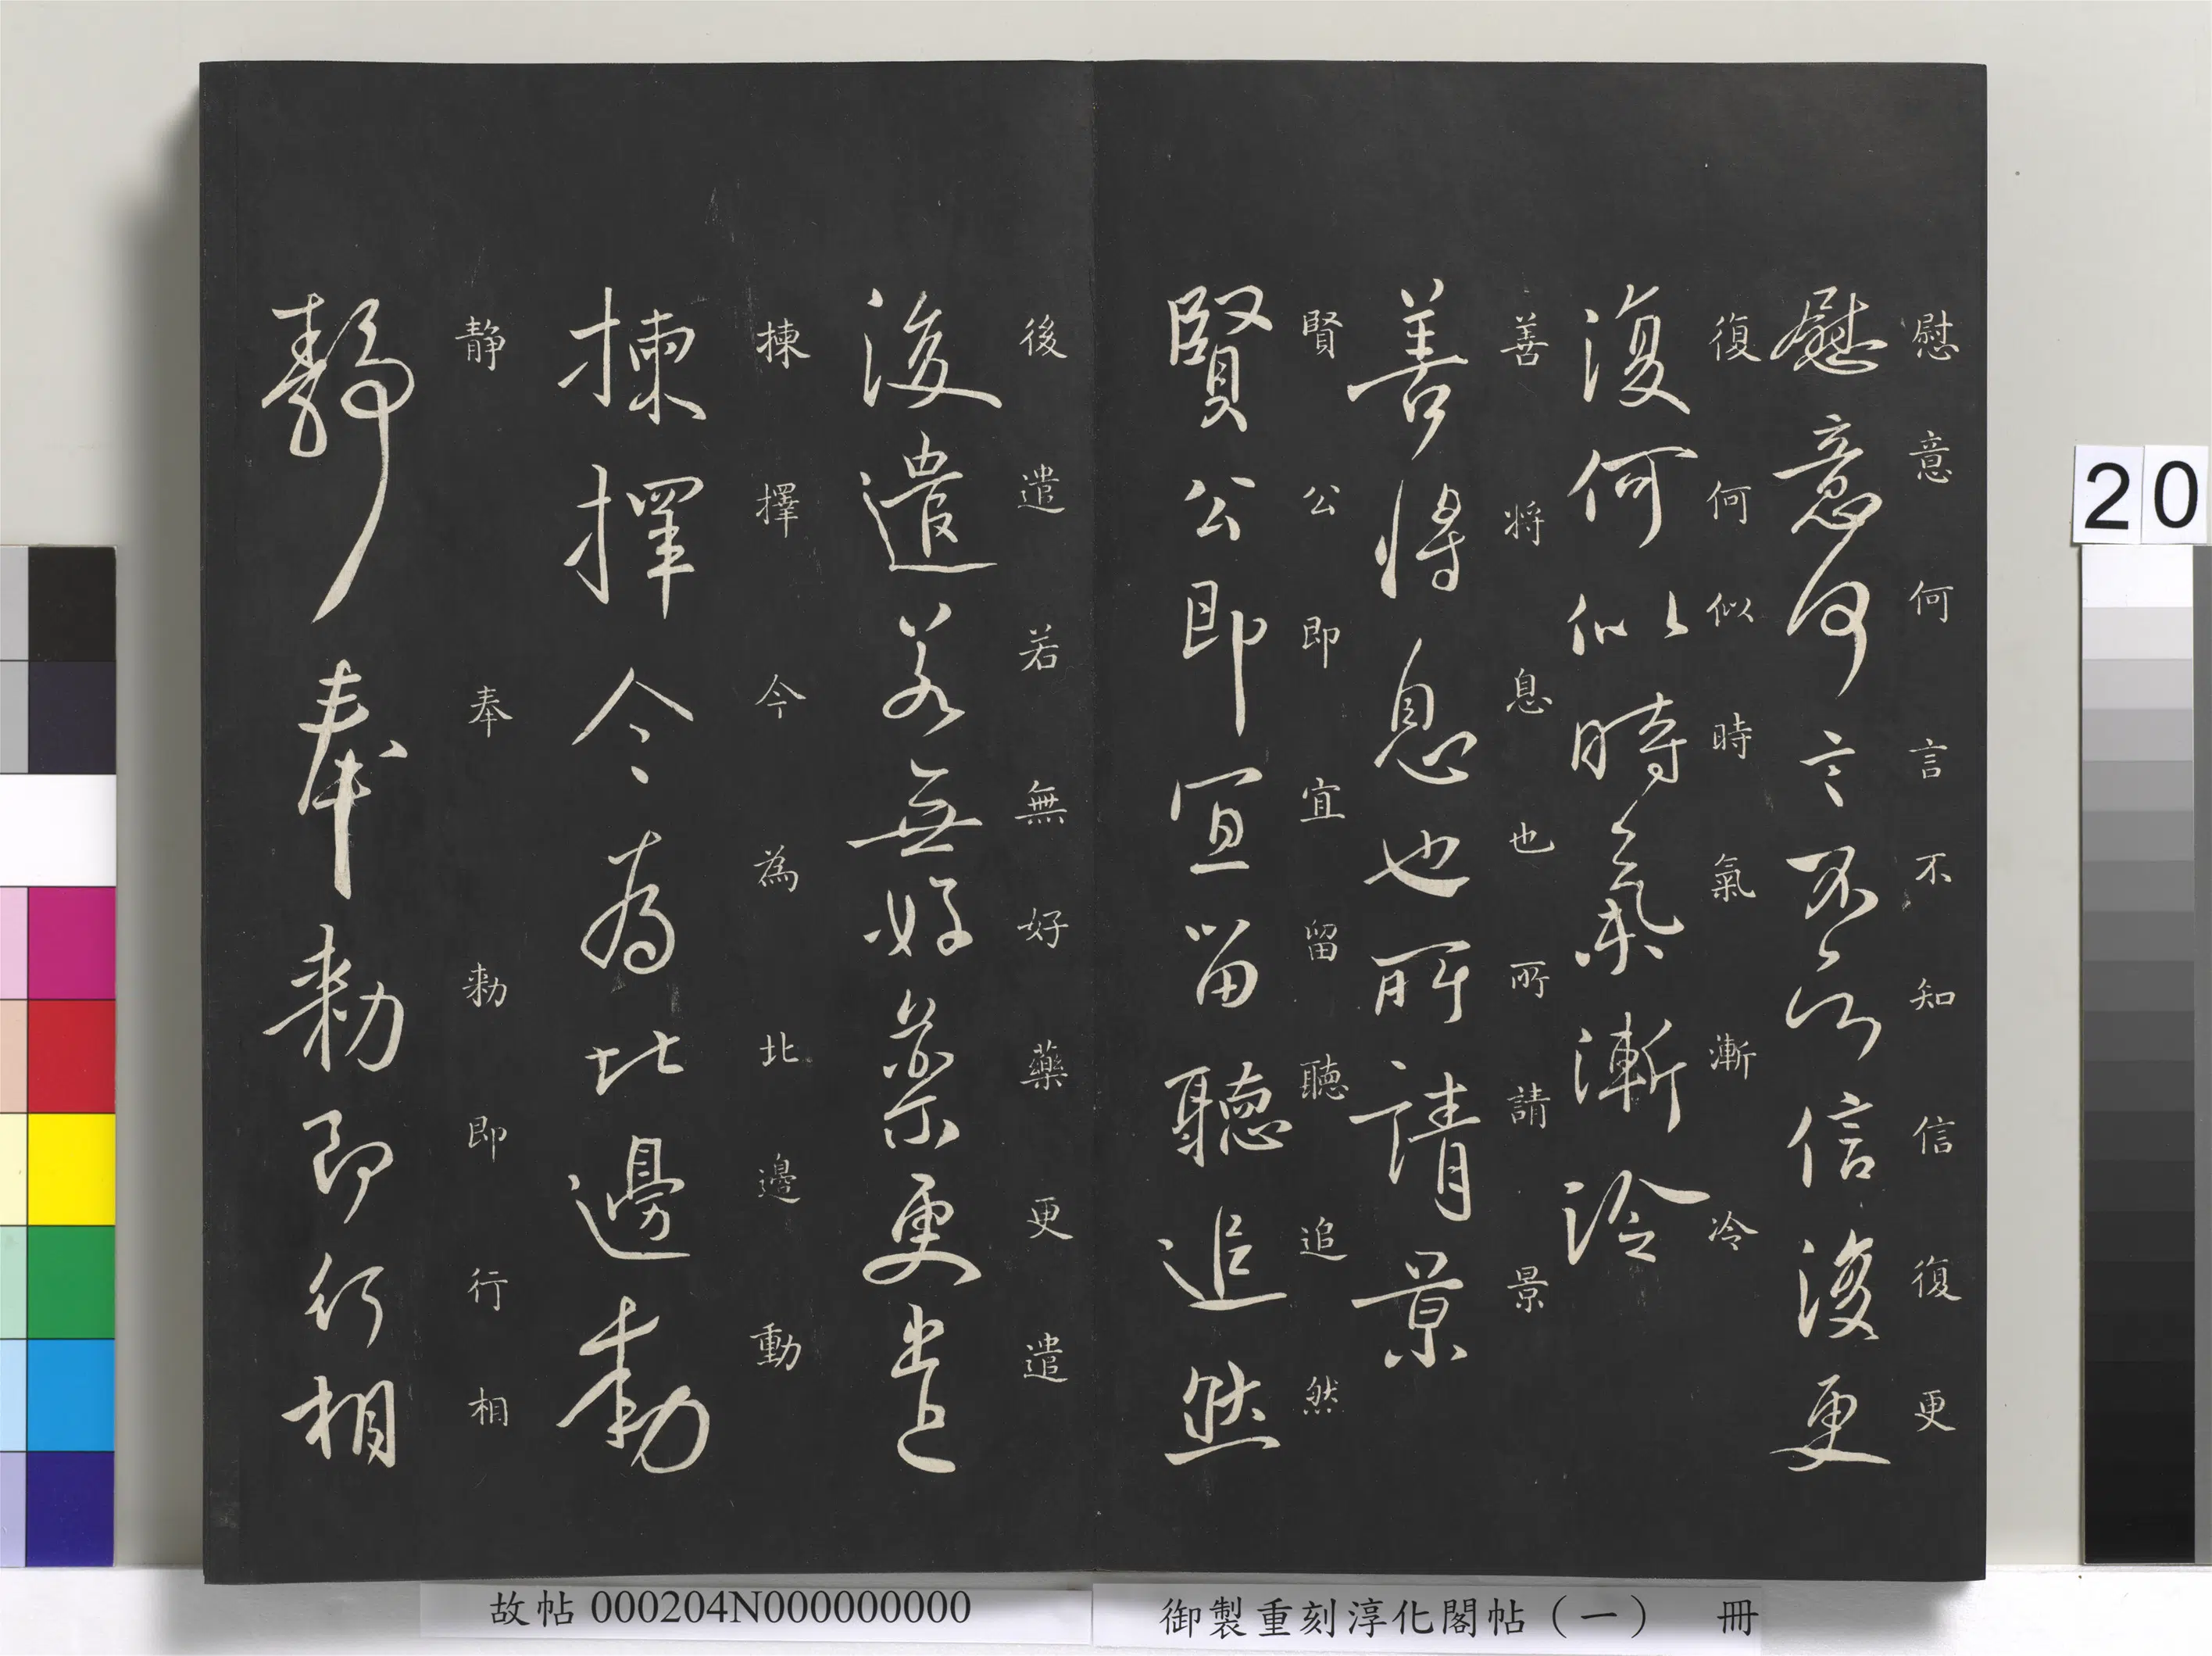 慰意何言不知信復更
慰意何言不知信復更
復何似時氣漸冷
復何似時氣漸冷
善將息也所請景
善將息也所請景
賢公即宜留聽追然
賢公即宜留聽追然
後遣若無好藥更遣
後遣若無好藥更遣
揀擇今為北邊動
揀擇今為北邊動
静奉勑即行相
靜奉勑即行相
20
故帖 000204N000000000
御製重刻淳化閣帖（一） 冊